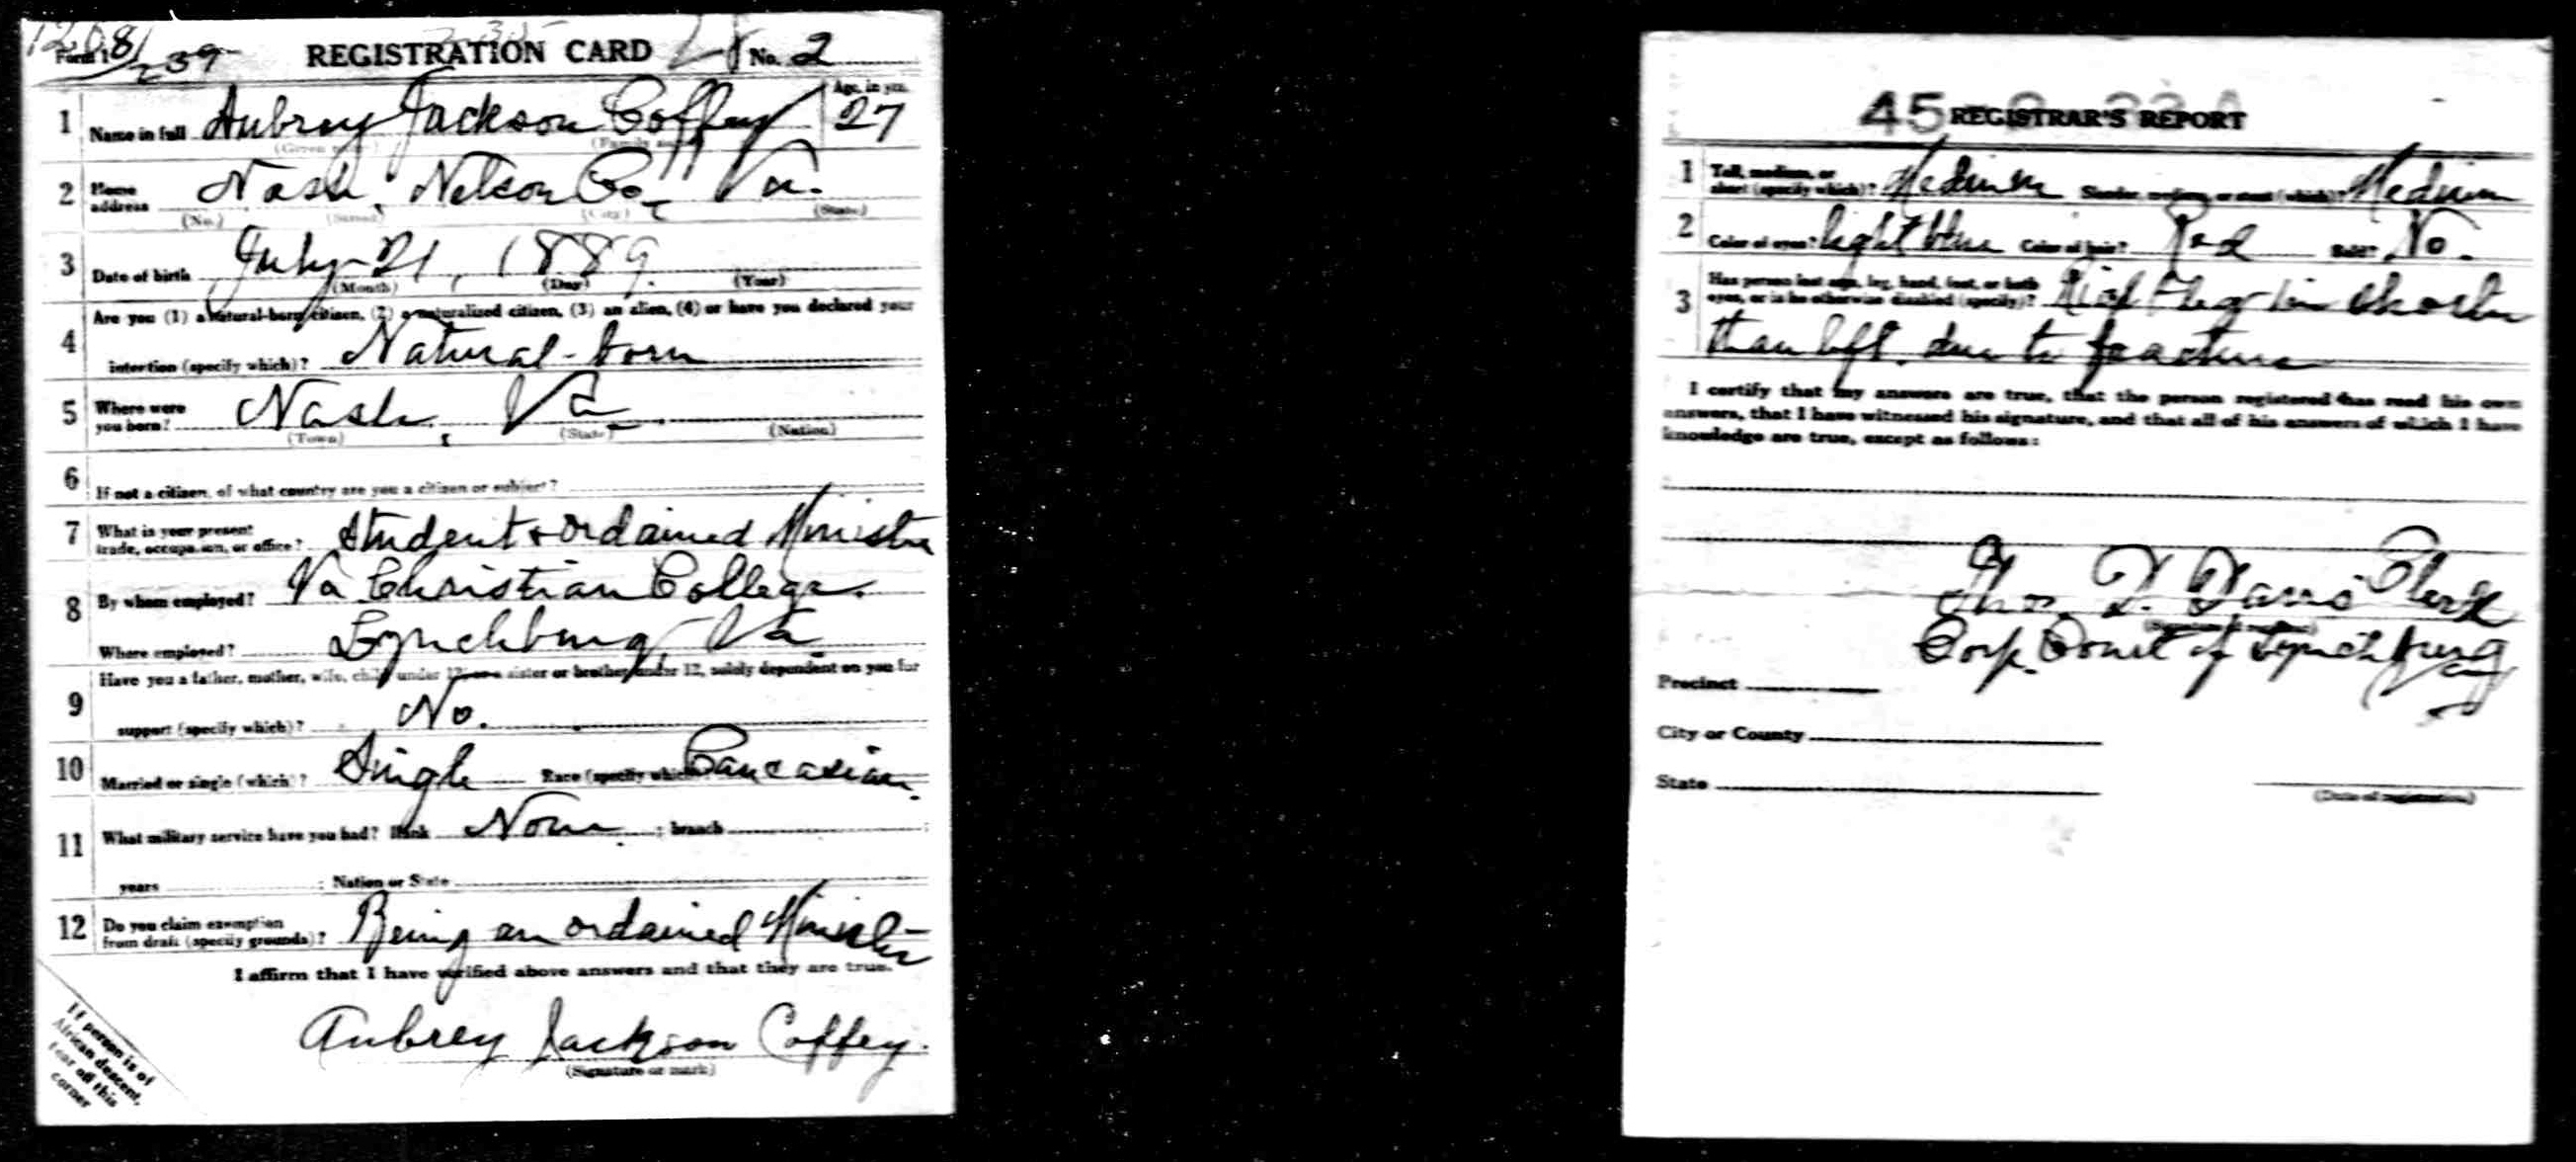 1208
Form 1 239 REGISTRATION CARD No. 2
1 Name in full Aubrey Jackson Coffey Age, in yrs. 27
(Given name) (Family name)
2 Home address Nash, Nelson Co., Va.
(No.) (Street) (City) (State)
3 Date of birth July 21, 1889.
(Month) (Day) (Year)
Are you (1) a natural-born citizen, (2) a naturalized citizen, (3) an alien, (4) or have you declared your
4 intention (specify which)? Natural-born
5 Where were you born? Nash, Va.
(Town) (State) (Nation)
6 If not a citizen, of what country are you a citizen or subject?
7 What is your present trade, occupation, or office? Student & ordained Minister
8 By whom employed? Va Christian College.
Where employed? Lynchburg, Va
Have you a father, mother, wife, child under 12, or a sister or brother under 12, solely dependent on you for
9 support (specify which)? No.
10 Married or single (which)? Single Race (specify which) Caucasian.
11 What military service have you had? Rank None ; branch ;
years ; Nation or State
12 Do you claim exemption from draft (specify grounds)? Being an ordained Minister
I affirm that I have verified above answers and that they are true.
Aubrey Jackson Coffey.
(Signature or mark)
If person is of
African descent,
tear off this
corner
45 REGISTRAR'S REPORT
1 Tall, medium, or short (specify which)? Medium Slender, medium, or stout (which)? Medium
2 Color of eyes? light blue Color of hair? Red Bald? No.
3 Has person lost arm, leg, hand, foot, or both eyes, or is he otherwise disabled (specify)? Right leg shorter
than left due to fracture
I certify that my answers are true, that the person registered has read his own
answers, that I have witnessed his signature, and that all of his answers of which I have
knowledge are true, except as follows:
Thos. D. Davis Clerk
(Signature of registrar)
Corp. Court of Lynchburg
Va
Precinct
City or County
State
(Date of registration)